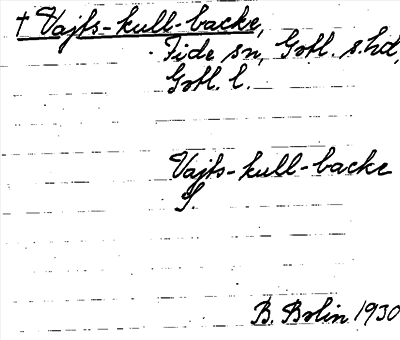 † Vajts-kull-backe,
Fide sn, Gotl. s. hd,
Gotl. l.
Vajts-kull-backe
S.
B. Bolin 1930